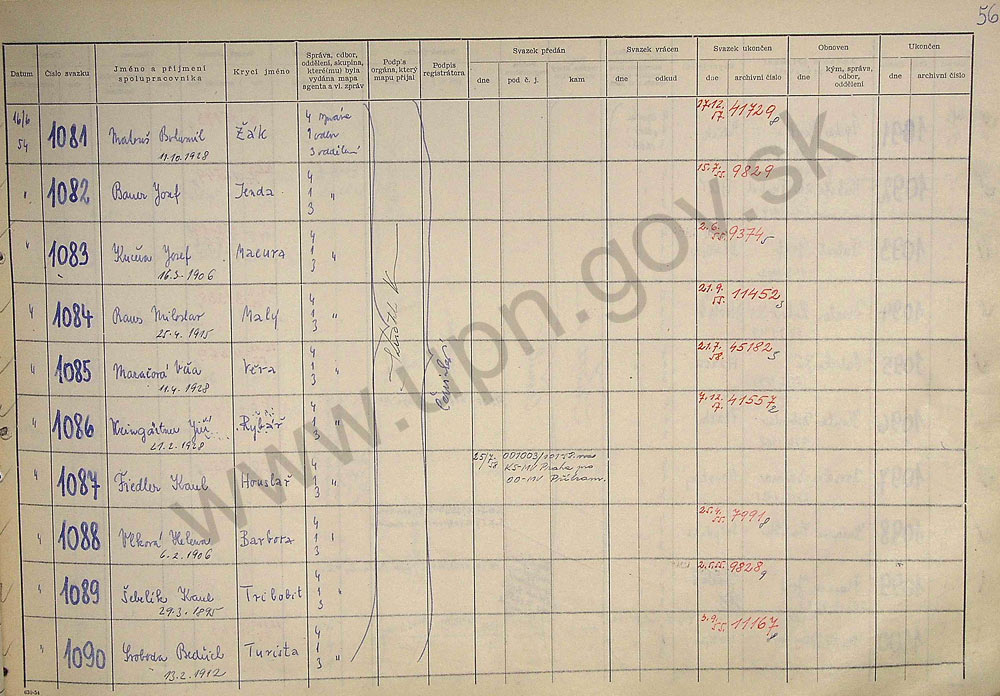 56
Datum
Číslo svazku
Jméno a příjmení spolupracovníka
Krycí jméno
Správa, odbor, oddělení, skupina, které(mu) byla vydána mapa agenta a vl. zpráv
Podpis orgána, který mapu přijal
Podpis registrátora
Svazek předán
dne pod č. j. kam
Svazek vrácen
dne odkud
Svazek ukončen
dne archivní číslo
Obnoven
dne kým, správa, odbor, oddělení
Ukončen
dne archivní číslo
16/6 54 1081 Matouš Bohumil Žák 4 správa 17.12. 57. 41729
11.10.1928 1 odbor
3 oddělení
" 1082 Bauer Josef Jenda 4 1 3 " 15.7. 55. 9829
" 1083 Kučera Josef Macura 4 1 3 " 2.6. 55. 9374
16.3.1906
" 1084 Miloslav Malý 4 1 3 " 21.9. 55. 11452
25.4.1915
" 1085 Věra Věra 4 1 3 " 21.7. 58. 45182
11.4.1928
" 1086 Weingärtner Jiří Rybář 4 1 3 " 7.12. 41557
21.2.1928
" 1087 Fiedler Karel Houslař 4 1 3 " 25/7 58 KS-MV Praha pro
OO-MV Příbram.
" 1088 Vlková Helena Barbora 4 1 3 " 25.4. 55. 7991
6.2.1906
" 1089 Šebelík Karel Tribobit 4 1 3 " 9828
29.3.1895
" 1090 Svoboda Bedřich Turista 4 1 3 " 5.9. 55. 11167
13.2.1912
www.upn.gov.sk